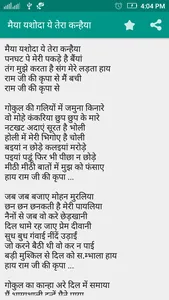 4:04 PM
मैया यशोदा ये तेरा कन्हैया
मैया यशोदा ये तेरा कन्हैया
पनघट पे मेरी पकड़े है बैंया
तंग मुझे करता है संग मेरे लड़ता हाय
राम जी की कृपा से मैं बची
हाय राम जी की कृपा से
गोकुल की गलियों में जमुना किनारे
वो मोहे कंकरिया छुप छुप के मारे
नटखट अदाएं सूरत है भोली
होली में मेरी भिगाेए है चोली
बइयां न छोड़े कलइयां मरोड़े
पइयां पडूं फिर भी पीछा न छोड़े
मीठी मीठी बातों में मुझ को फंसाए
हाय राम जी की कृपा ...
जब जब बजाए मोहन मुरलिया
छन छन छनकती है मेरी पायलिया
नैनों से जब वो करे छेड़खानी
दिल थामे रह जाए प्रेम दीवानी
सुध बुध गंवाई नींदें उड़ाईं
जो करने बैठी थी वो कर न पाई
बड़ी मुश्किल से दिल को स.म्भाला हाय
हाय राम जी की कृपा ...
गोकुल का कान्हा अरे दिल में समाया